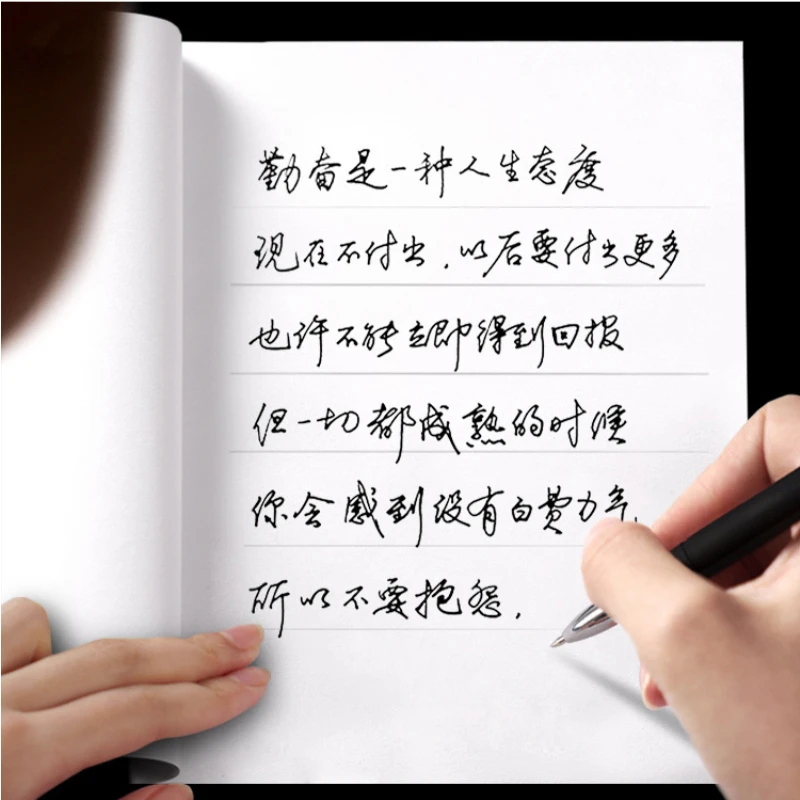 勤奋是一种人生态度
现在不付出,以后要付出更多
也许不能立即得到回报
但一切都成熟的时候
你会感到没有白费力气
所以不要抱怨,